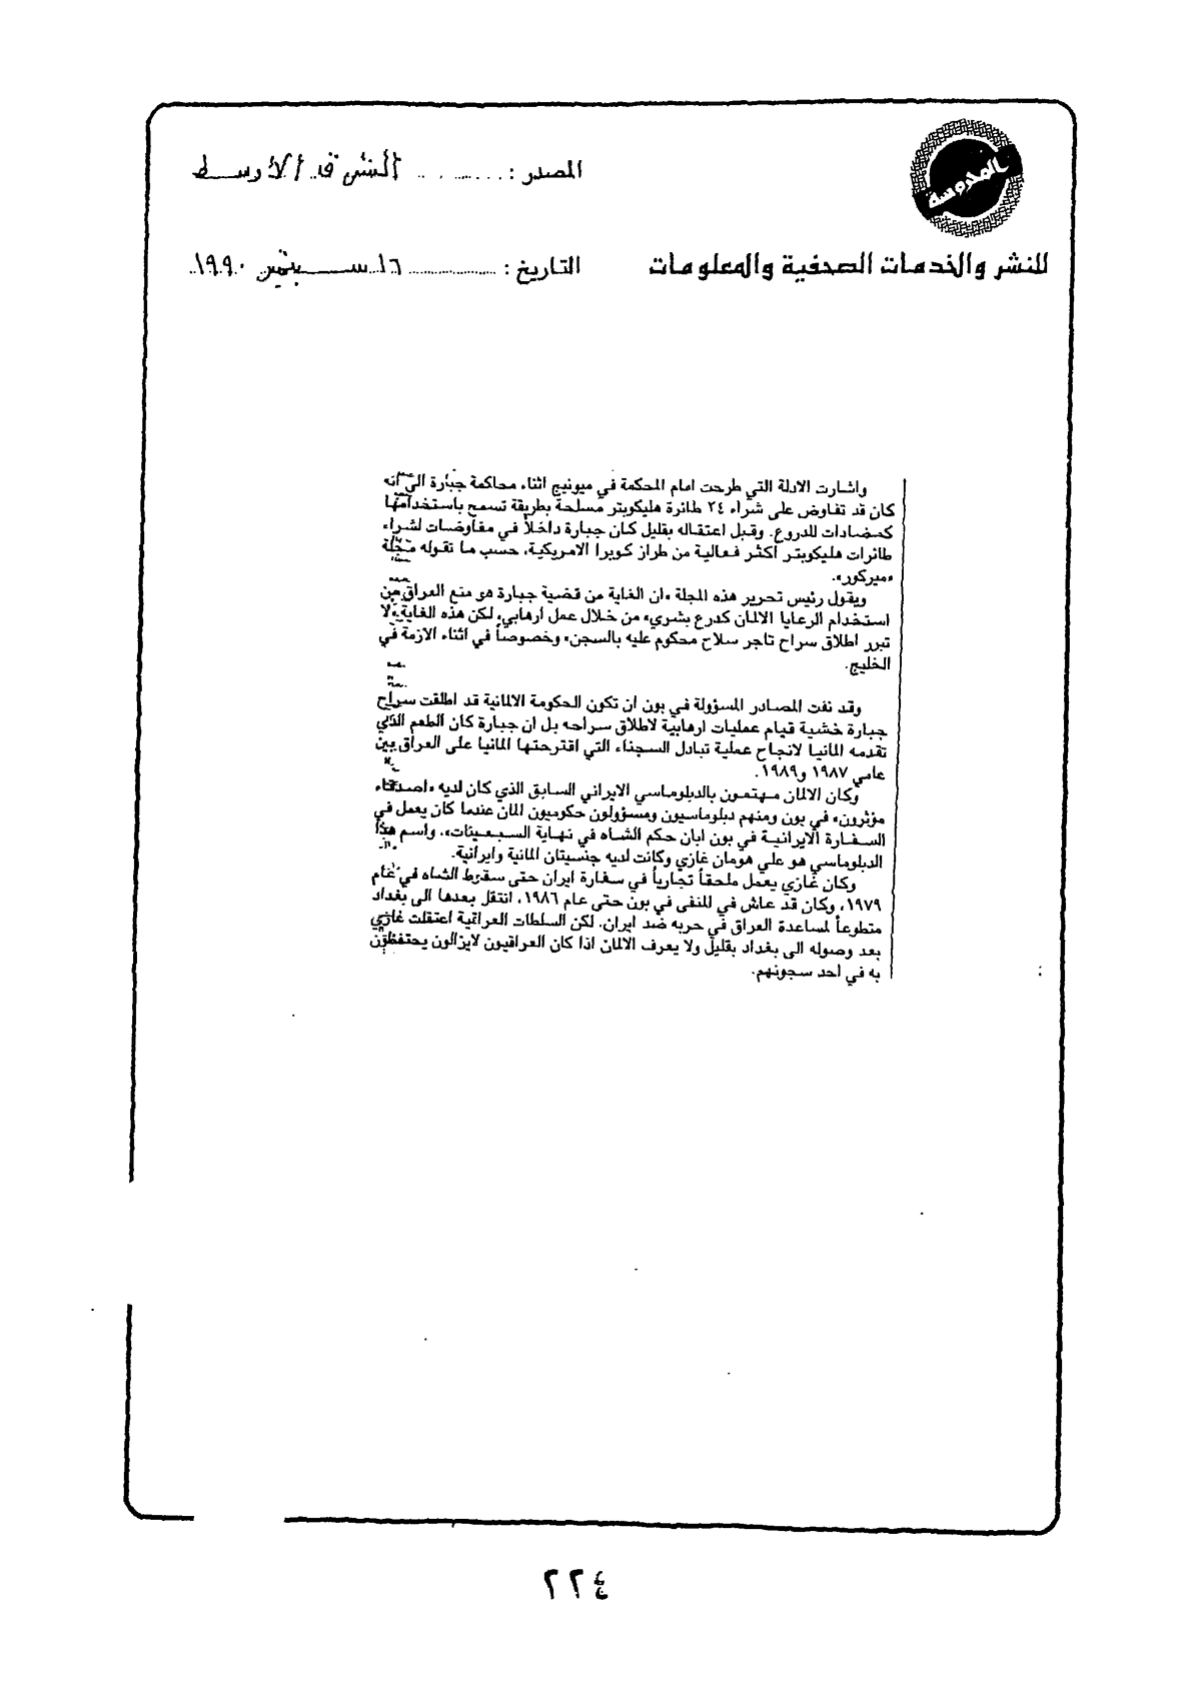 المحروسة
المصدر : الشرق الأوسط
للنشر والخدمات الصحفية والمعلومات
التاريخ : ١٦ سبتمبر ١٩٩٠
واشارت الادلة التي طرحت امام المحكمة في ميونيخ اثناء محاكمة جبارة الى انه
كان قد تفاوض على شراء ٢٤ طائرة هليكوبتر مسلحة بطريقة تسمح باستخدامها
كمضادات للدروع. وقبل اعتقاله بقليل كان جبارة داخلاً في مفاوضات لشراء
طائرات هليكوبتر اكثر فعالية من طراز كوبرا الامريكية، حسب ما تقوله مجلة
«ميركور».
ويقول رئيس تحرير هذه المجلة «ان الغاية من قضية جبارة هو منع العراق من
استخدام الرعايا الالمان كدرع بشري» من خلال عمل ارهابي، لكن هذه الغاية «لا
تبرر اطلاق سراح تاجر سلاح محكوم عليه بالسجن» وخصوصاً في اثناء الازمة في
الخليج.
وقد نفت المصادر المسؤولة في بون ان تكون الحكومة الالمانية قد اطلقت سراح
جبارة خشية قيام عمليات ارهابية لاطلاق سراحه بل ان جبارة كان الطعم الذي
تقدمه المانيا لانجاح عملية تبادل السجناء التي اقترحتها المانيا على العراق بين
عامي ١٩٨٧ و١٩٨٩.
وكان الالمان مهتمون بالدبلوماسي الايراني السابق الذي كان لديه «اصدقاء
مؤثرون» في بون ومنهم دبلوماسيون ومسؤولون حكوميون المان عندما كان يعمل في
السفارة الايرانية في بون ابان حكم الشاه في نهاية السبعينات». واسم هذا
الدبلوماسي هو علي هومان غازي وكانت لديه جنسيتان المانية وايرانية.
وكان غازي يعمل ملحقاً تجارياً في سفارة ايران حتى سقوط الشاه في عام
١٩٧٩، وكان قد عاش في المنفى في بون حتى عام ١٩٨٦، انتقل بعدها الى بغداد
متطوعاً لمساعدة العراق في حربه ضد ايران. لكن السلطات العراقية اعتقلت غازي
بعد وصوله الى بغداد بقليل ولا يعرف الالمان اذا كان العراقيون لايزالون يحتفظون
به في احد سجونهم.
٢٢٤